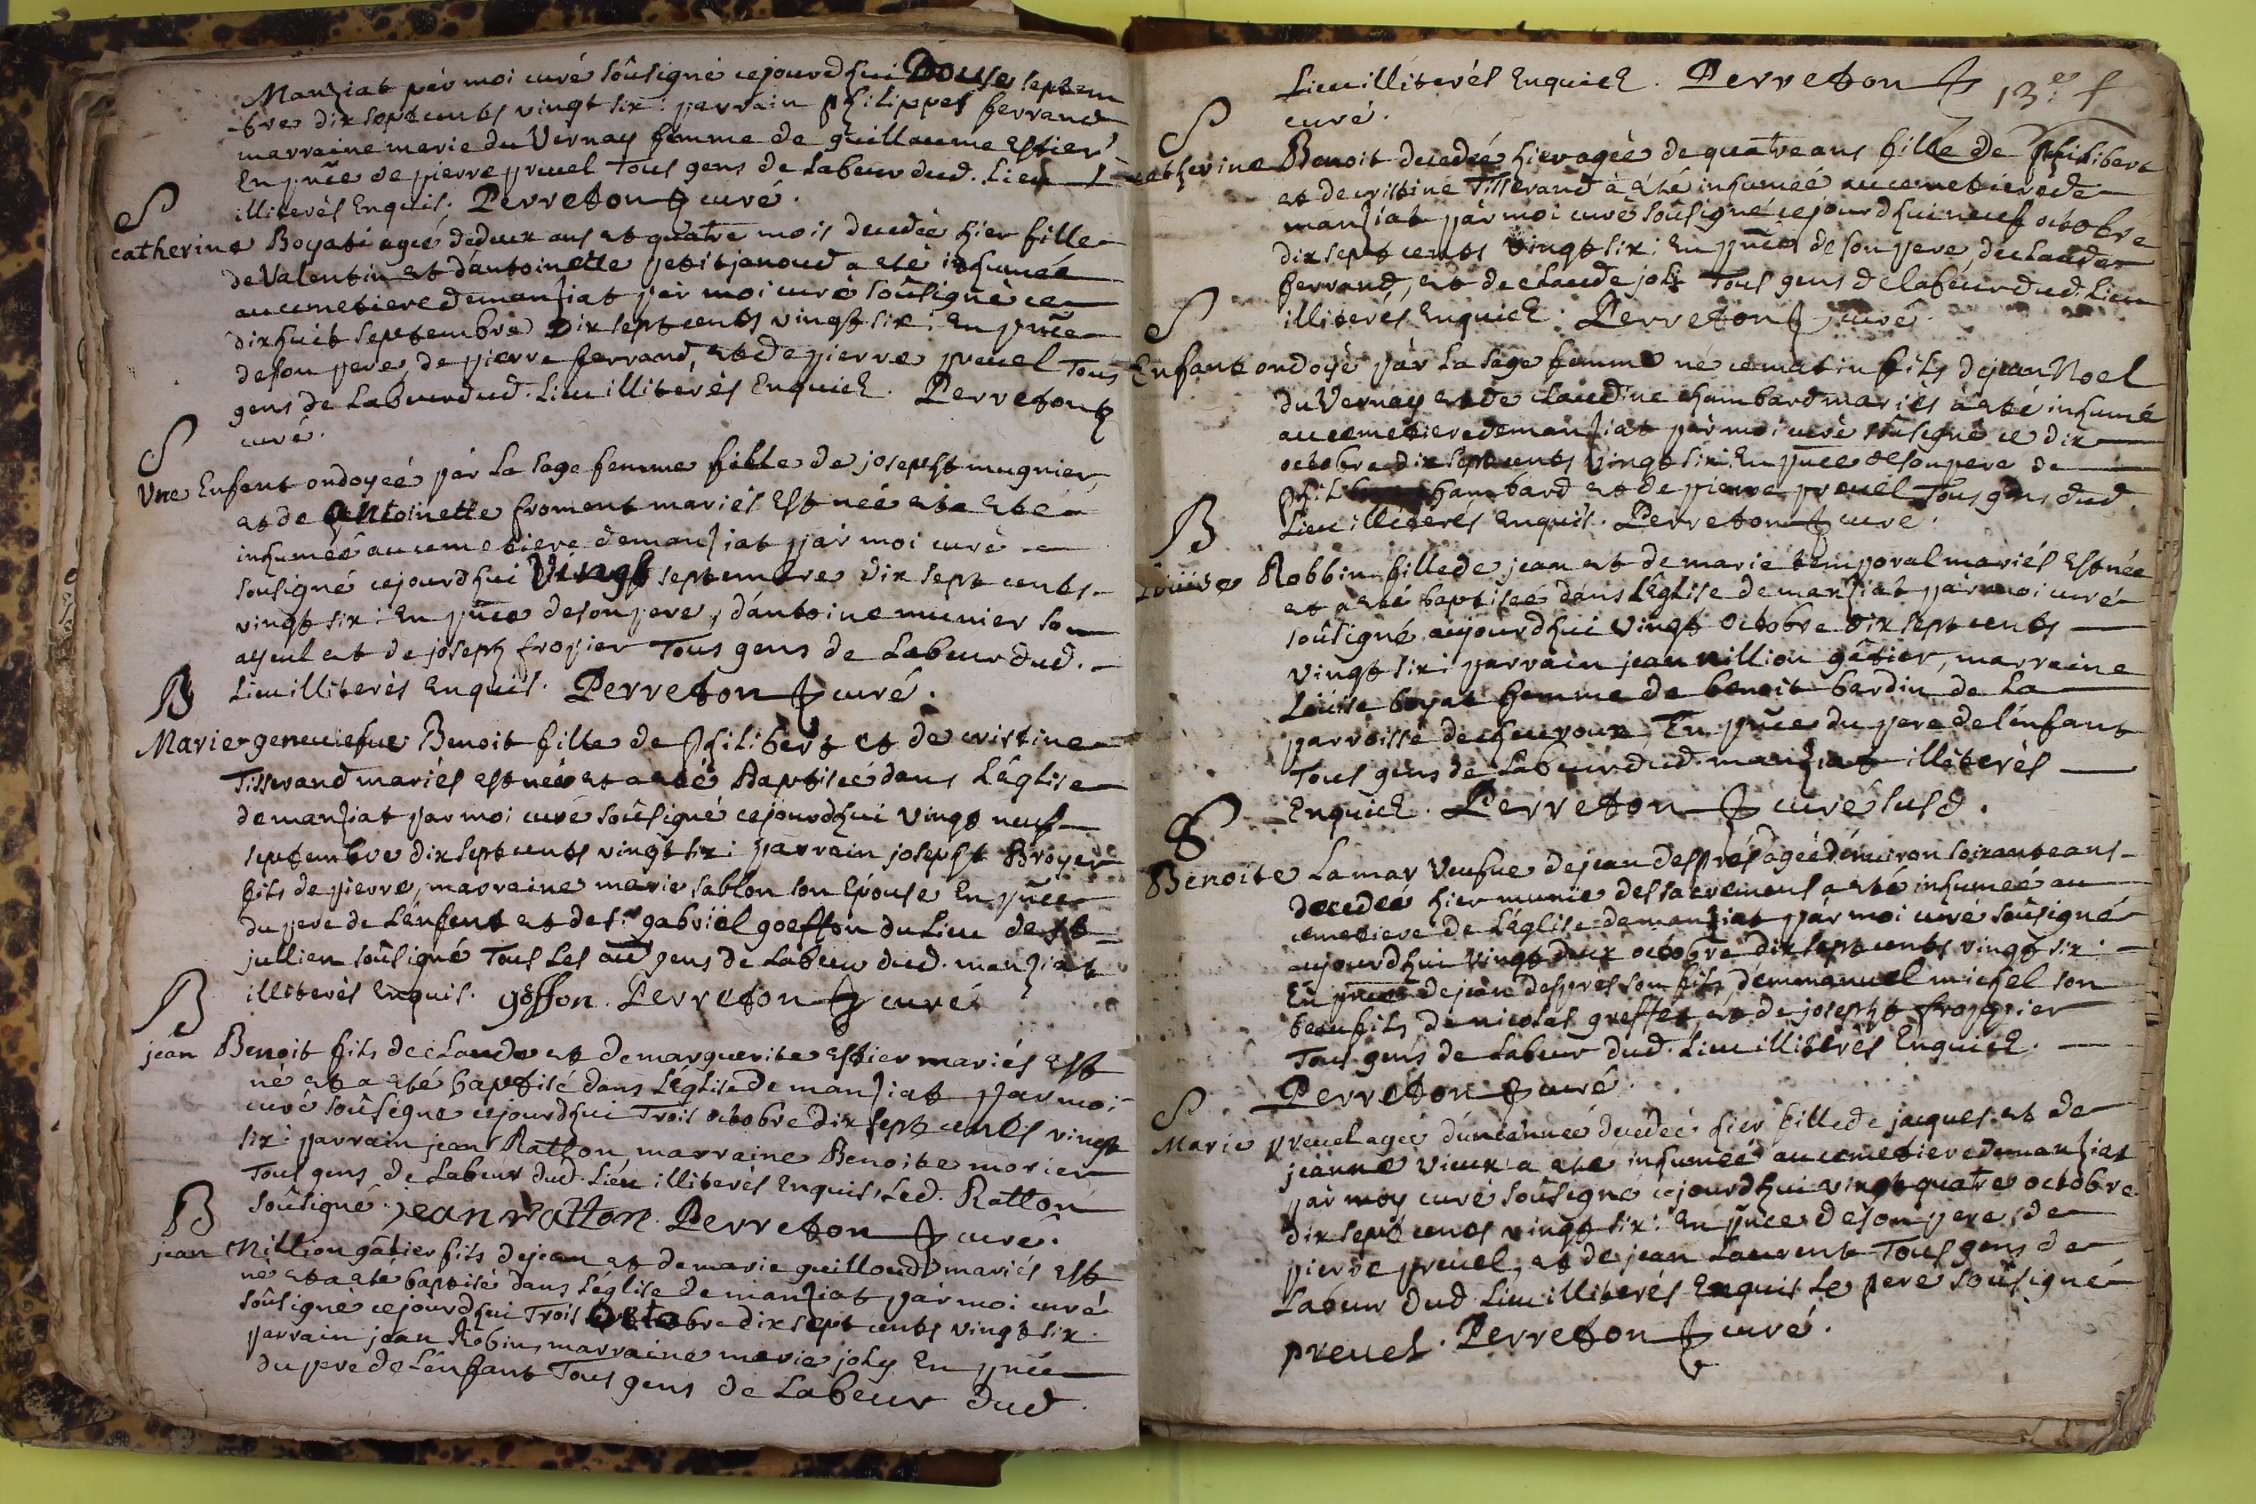 Manziat par moi curé soûsigné cejourd'hui Douse septem
-bre dix sept cents vingt six : parrain philippes ferrand
marraine marie du Vernay femme de guillaume Estier
En pñce de pierre preuel Tous gens de Labeur dud. Lieu
illiterés Enquis. Perreton curé.
S
catherine Boyat agée de deux ans et quatre mois decedée hier fille
de Valentin et d'antoinette petitjanoud a eté inhumée
au cemetiere de manziat par moi curé soûsigné ce
dixhuit septembre Dix sept cents vingt six : En pñce
de son pere, de pierre ferrand, et de pierre preuel Tous
gens de Labeur dud. Lieu illiterés Enquich. Perreton
curé.
S
Vne Enfant ondoyeé par La sage femme fille de josepht mugnier
et de Antoinette froment mariés Est neé et a eté
inhumeé au cemetiere de manziat par moi curé
soûsigné cejourd'hui Vingt septembre dix sept cents
vingt six : En pñce de son pere, d'antoine munier son
ayeul et de joseph froyier Tous gens de Labeur dud.
Lieu illiterés Enquis. Perreton curé.
B
Marie-geneuiefue Benoit fille de philibert et de cristine
Tisserand mariés est neé et a eté Baptiseé dans L'église
de manziat par moi curé soûsigné cejourd'hui vingt neuf
septembre dix sept cents vingt six : parrain josepht Broyer
fils de pierre, marraine marie sablon son Epouse En pñce
du pere de L'enfent et de sr. gabriël goeffon du Lieu de st
jullien soûsigné Tous Les aud gens de Labeur dud. manziat
illiterés Enquis. göffon. Perreton curé
B
jean Benoit fils de claude et de marguerite Estier mariés Est
né et a eté baptisé dans L'église de manziat par moi
curé soûsigné cejourd'hui Trois octobre dix sept cents vingt
six : parrain jean Ratton marraine Benoite morier
Tous gens de Labeur dud. Lieu illiterés Enquis, Led. Ratton
soûsigné. jean ratton. Perreton curé.
B
jean Nillion gâtier fils de jean et de marie guilloud mariés Est
né et a eté baptisé dans L'église de manziat par moi curé
soûsigné cejourd'hui Trois Octobre dix sept cents vingt six.
parrain jean Robin, marraine marie joly En pñce
du pre de L'enfant Tous gens de Labeur dud.
Lieu illiterés Enquich. Perreton 13e f
curé.
S
catherine Benoit decedeé hier ageé de quatre ans fille de philibert
et de cristine Tisserand à eté inhumeé au cemetiere de
manziat par moi curé soûsigné cejourd'hui neuf octobre
dix sept cents vingt six : En pñce de son pere, de claude
ferrand, et de claude joly Tous gens de labeur dud. Lieu
illiterés Enquich. Perreton curé.
S
Enfant ondoyé par La sage femme né ce matin fils de jean Noel
du Vernay et de claudine chambard mariés à eté inhumé
au cemetiere de manziat par moi curé soûsigné ce dix
octobre dix sept cents vingt six : En pñce de son pere de
chambard et de pierre preuel Tous gens dud.
Lieu illiterés Enquis. Perreton curé.
B
Loüise Robbin fille de jean et de marie temporal mariés Est née
et a eté baptiseé dans L'église de manziat par moi curé
soûsigné aujourd'hui vingt octobre dix sept cents
vingt six : parrain jean nillion gâtier, marraine
Loüise boyat femme de benoit bardin de La
parroisse de cheuroux, En pñce du pere de l'enfant
Tous gens de Labeur dud. manziat illiterés
Enquich. Perreton curé susd.
S
Benoite Lamar Veufue de jean després ageé d'enuiron soixante ans
decedeé hier munie des sacremens a eté inhumeé au
cemetiere de L'église de manziat par moi curé soûsigné
aujourd'hui vingt deux octobre dix sept cents vingt six :
En pñce de jean despres son fils, d'emmanuel michel son
beaufils, de nicolas greffet et de josepht froppier
Tous gens de Labeur dud. Lieu illiterés Enquich.
Perreton curé.
S
Marie preuel ageé d'une anneé decedeé hier fille de jacques et de
jeanne vieux a eté inhumeé au cemetiere de manziat
par moy curé soûsigné cejourd'hui vingt quatre octobre
dix sept cents vingt six : En pñce de son pere, de
pierre preuel, et de jean Laurent Tous gens de
Labeur dud. Lieu illiterés Enquis Le pere soûsigné
preuel. Perreton curé.